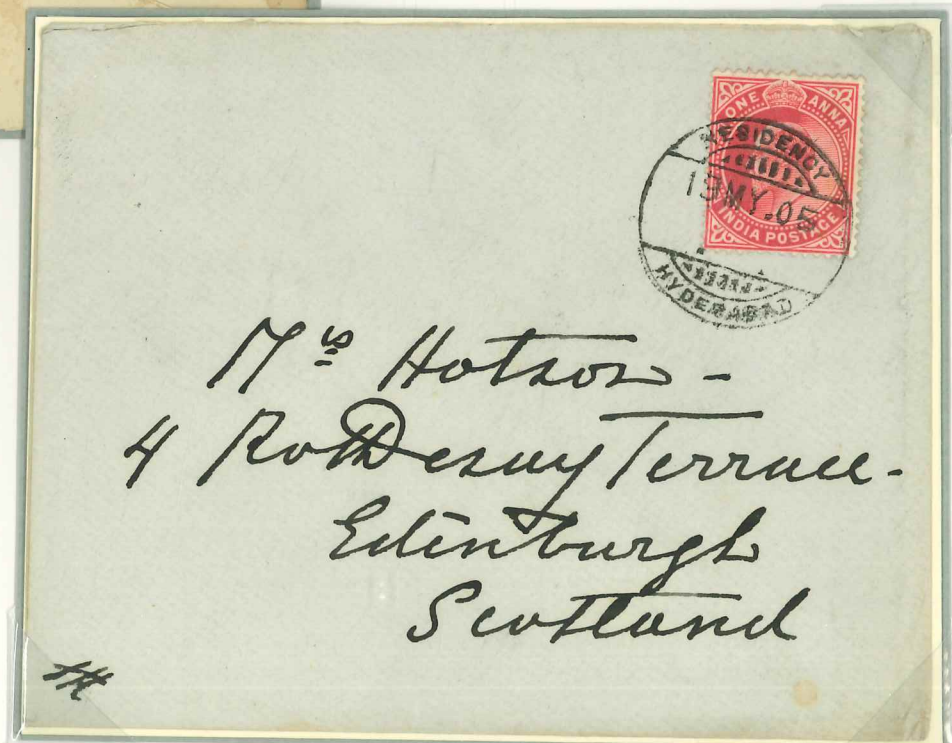 ONE ANNA
INDIA POSTAGE
RESIDENCY
19 MY.05
HYDERABAD
Mrs Hotson -
4 Rothesay Terrace -
Edinburgh
Scotland